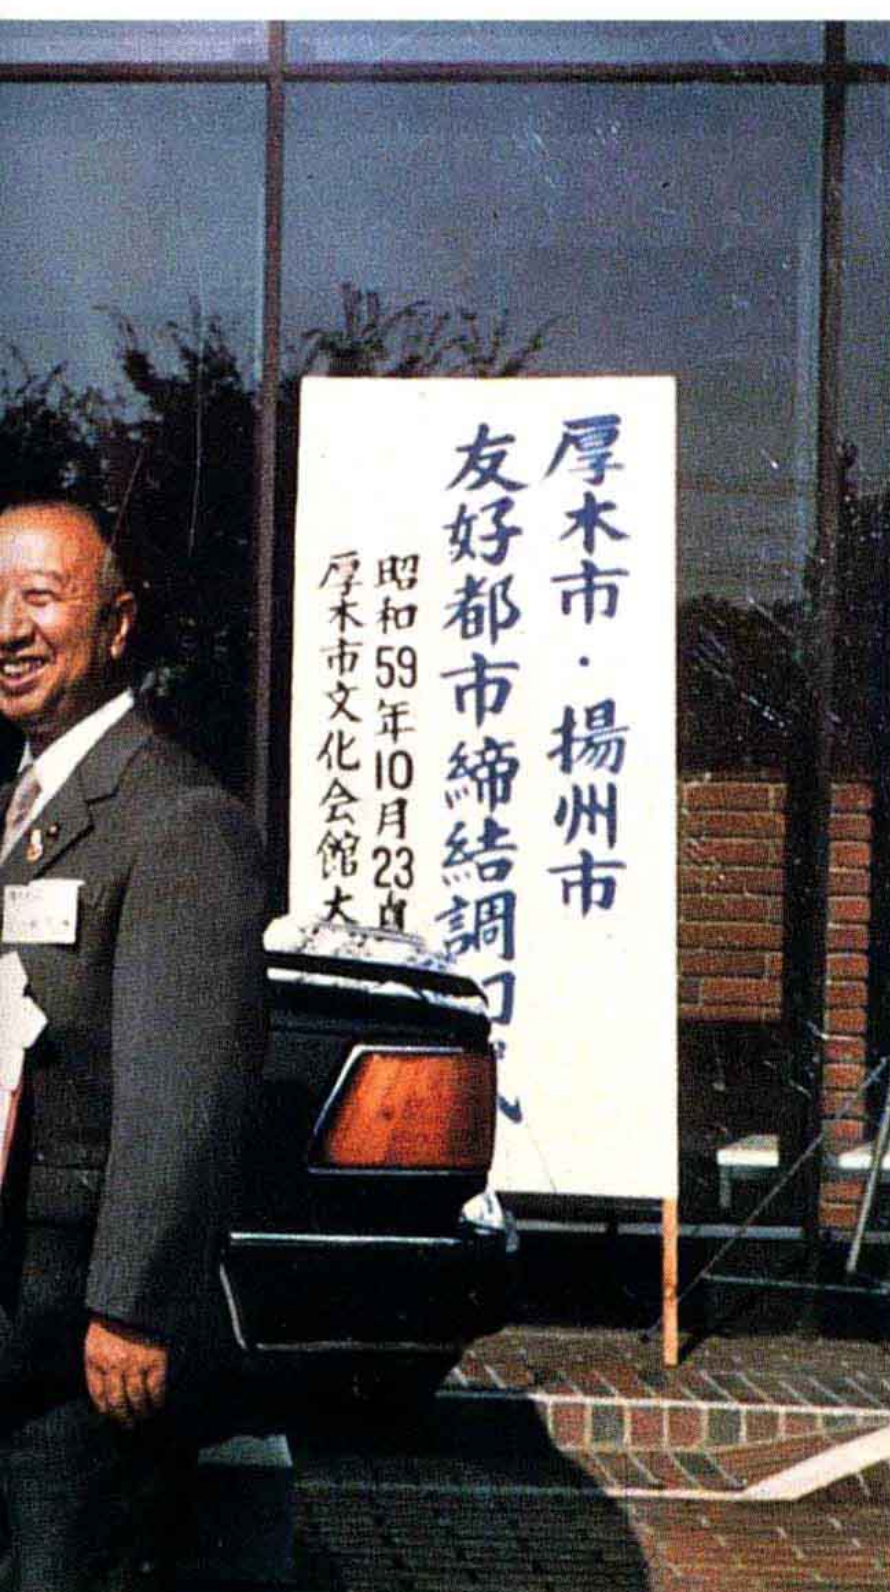 厚木市・揚州市
友好都市締結調印式
昭和59年10月23日
厚木市文化会館大